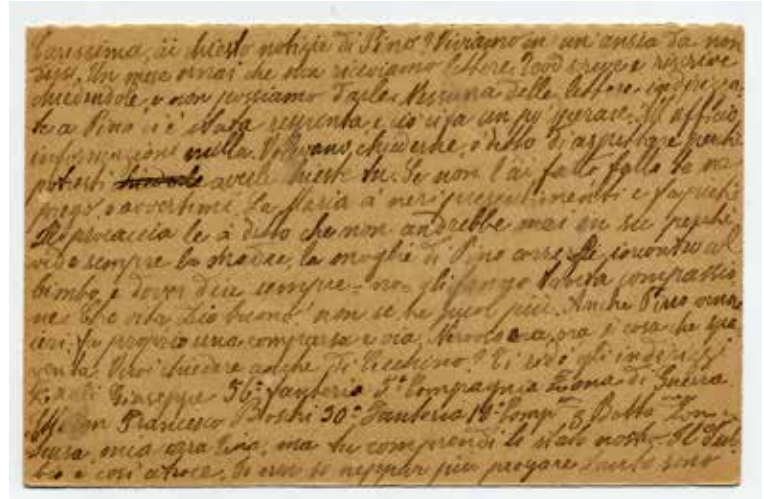 Carissima, ài chiesto notizie di Pino? Viviamo in un'ansia da non
dirsi. Un mese ormai che non riceviamo lettere. Dood scrive e riscrive
chiedendole, e non possiamo darle. Nessuna delle lettere indirizza-
te a Pino ci è stata respinta e ciò ci fa un po' sperare. All'officio
informazioni nulla. Volevano chiederne, ò detto di aspettare perchè
potresti averle chieste tu. Se non l'ài fatto fallo te ne
prego e avvertimi. La Maria à neri presentimenti e fa pochi
procaccia le à detto che non andrebbe mai su perchè
vede sempre la madre, la moglie di Pino correrle incontro col
bimbo, e dover dire sempre = no = gli fanno tanta compassio-
ne. Che vita Dio buono! non se ne puol più. Anche Pirro venne
ieri fa proprio una comparsa e via. Nervoso era, ora è cosa che spa-
venta. Vuoi chiedere anche di Cecchino? Ti redò gli indirizzi
Giuseppe 56º fanteria 5ª Compagnia Zona di Guerra
Francesco Boshi 30º Fanteria 19ª Comp 3 Batto Zon
Scusa mia cara, ma tu comprendi lo stato nostro. Il dub-
bio è così atroce. Io non so neppur più pregare tanto sono